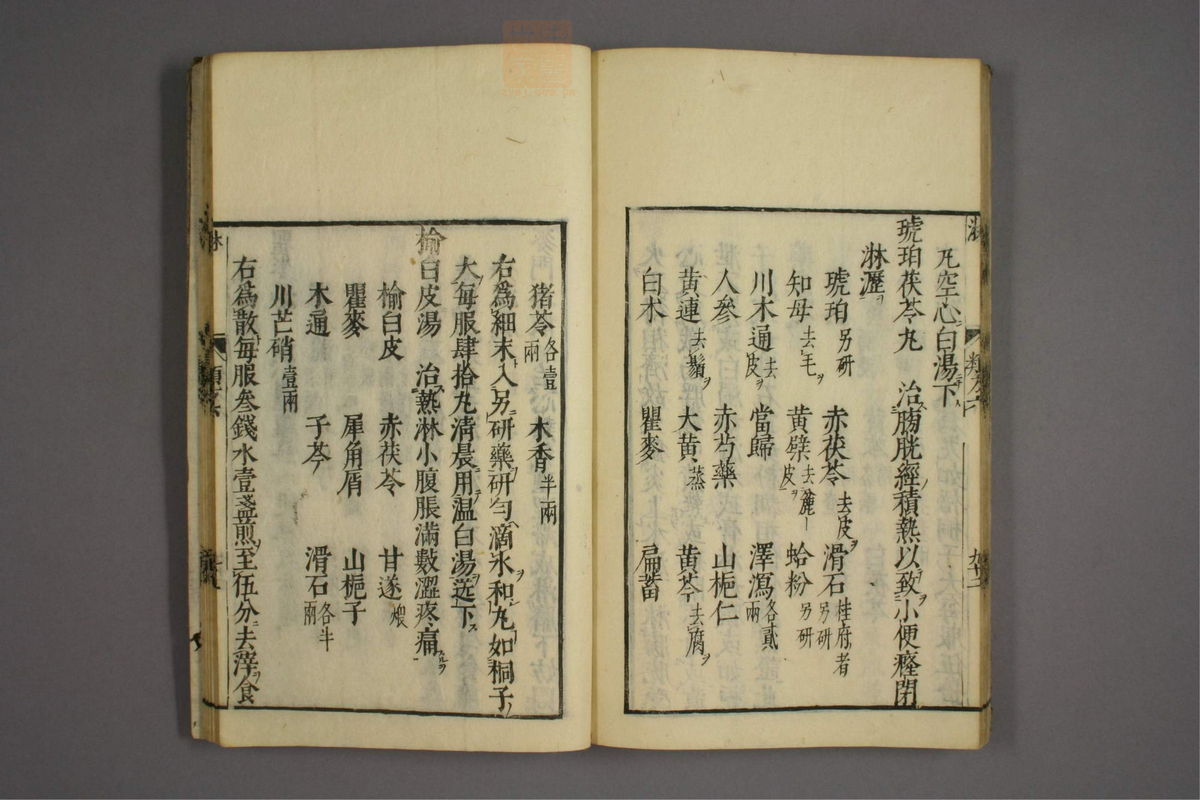 丸空心白湯下
琥珀茯苓丸 治膀胱經積熱以致小便癃閉
淋瀝
琥珀另研 赤茯苓去皮 滑石桂府者另研
知母去毛 黄蘗去麁皮 蛤粉另研
川木通去皮 當歸 澤瀉各貳兩
人參 赤芍藥 山梔仁
黄連去鬚 大黄蒸 黄芩去腐
白术 瞿麥 扁蓄
猪苓各壹兩 木香半兩
右爲細末入另研藥研勻滴水和丸如桐子
大每服肆拾丸清晨用温白湯送下
榆白皮湯 治熱淋小腹脹滿數澀疼痛
榆白皮 赤茯苓 甘遂煨
瞿麥 犀角屑 山梔子
木通 子芩 滑石各半兩
川芒硝壹兩
右爲散每服叄錢水壹盞煎至伍分去滓食